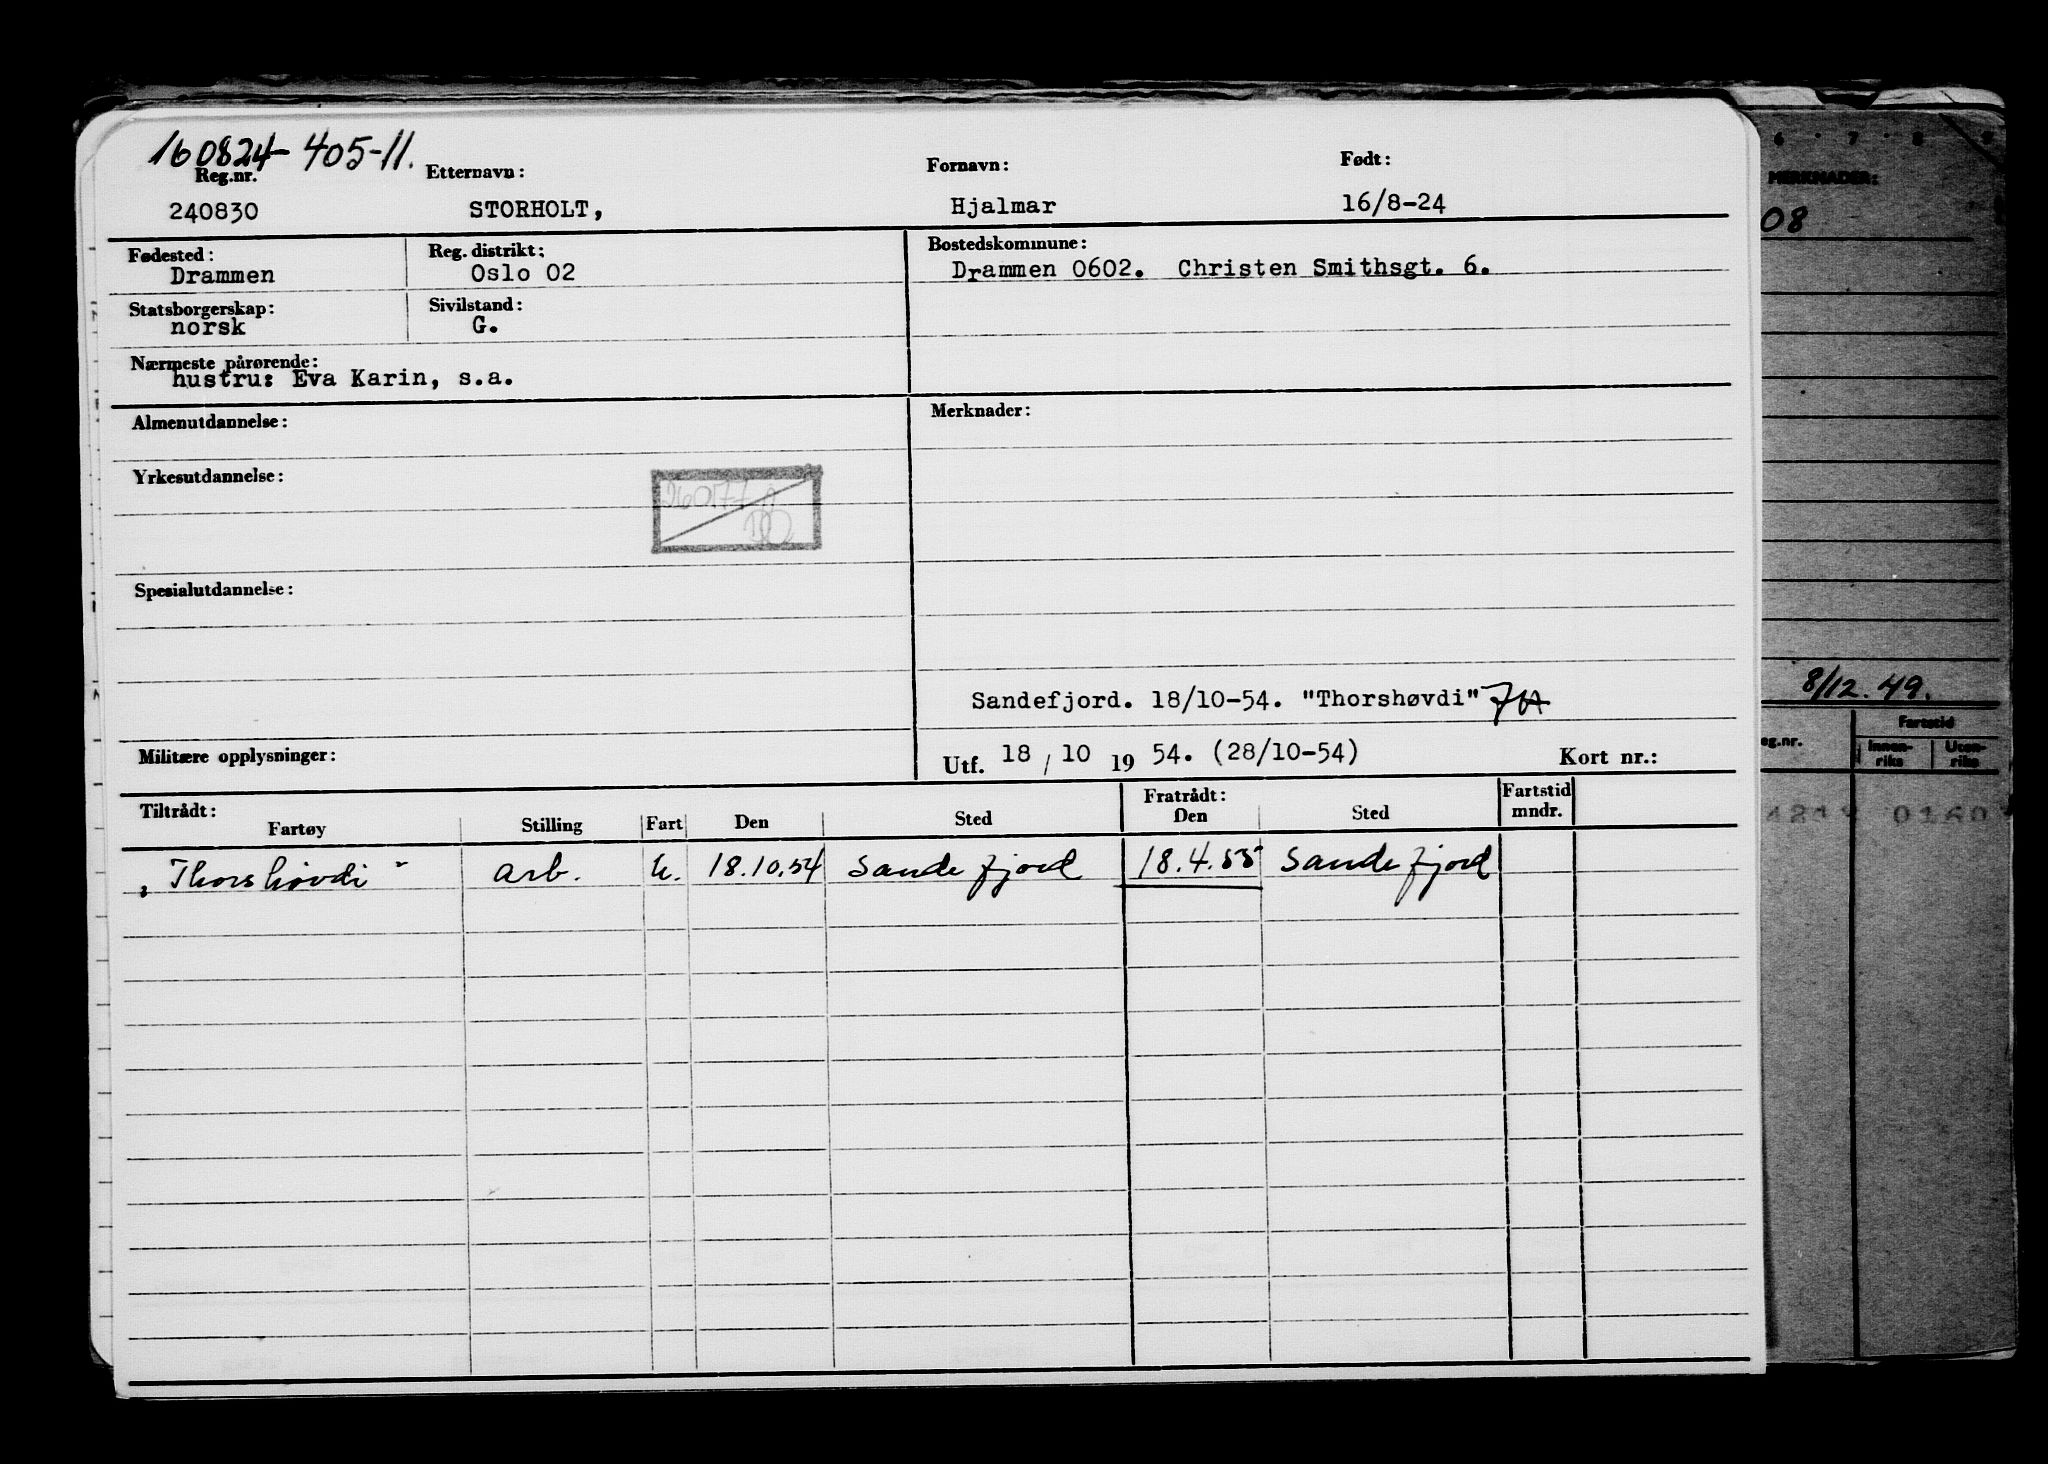 160824-405-11.
Reg.nr. Etternavn: Fornavn: Født:
240830 STORHOLT, Hjalmar 16/8-24
Fødested: Reg. distrikt: Bostedskommune:
Drammen Oslo 02 Drammen 0602. Christen Smithsgt. 6.
Statsborgerskap: Sivilstand:
norsk G.
Nærmeste pårørende:
hustru: Eva Karin, s.a.
Almenutdannelse: Merknader:
Yrkesutdannelse:
Spesialutdannelse:
Sandefjord. 18/10-54. "Thorshøvdi"
Militære opplysninger: Utf. 18 / 10 19 54. (28/10-54) Kort nr.:
Tiltrådt: Fratrådt: Fartstid
Fartøy Stilling Fart Den Sted Den Sted mndr.
"Thorshøvdi" arb. U. 18.10.54 Sandefjord 18.4.55 Sandefjord
6 7 8 9
MERKNADER:
08
8/12.49.
eg.nr. Fartstid
Innen-riks Uten-riks